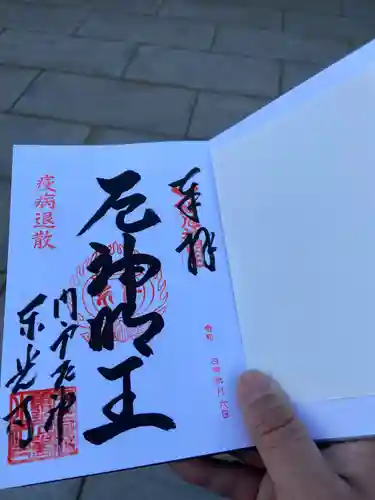 奉拝
令和 四年 月 六日
厄神明王
疫病退散
門戸厄神
東光寺